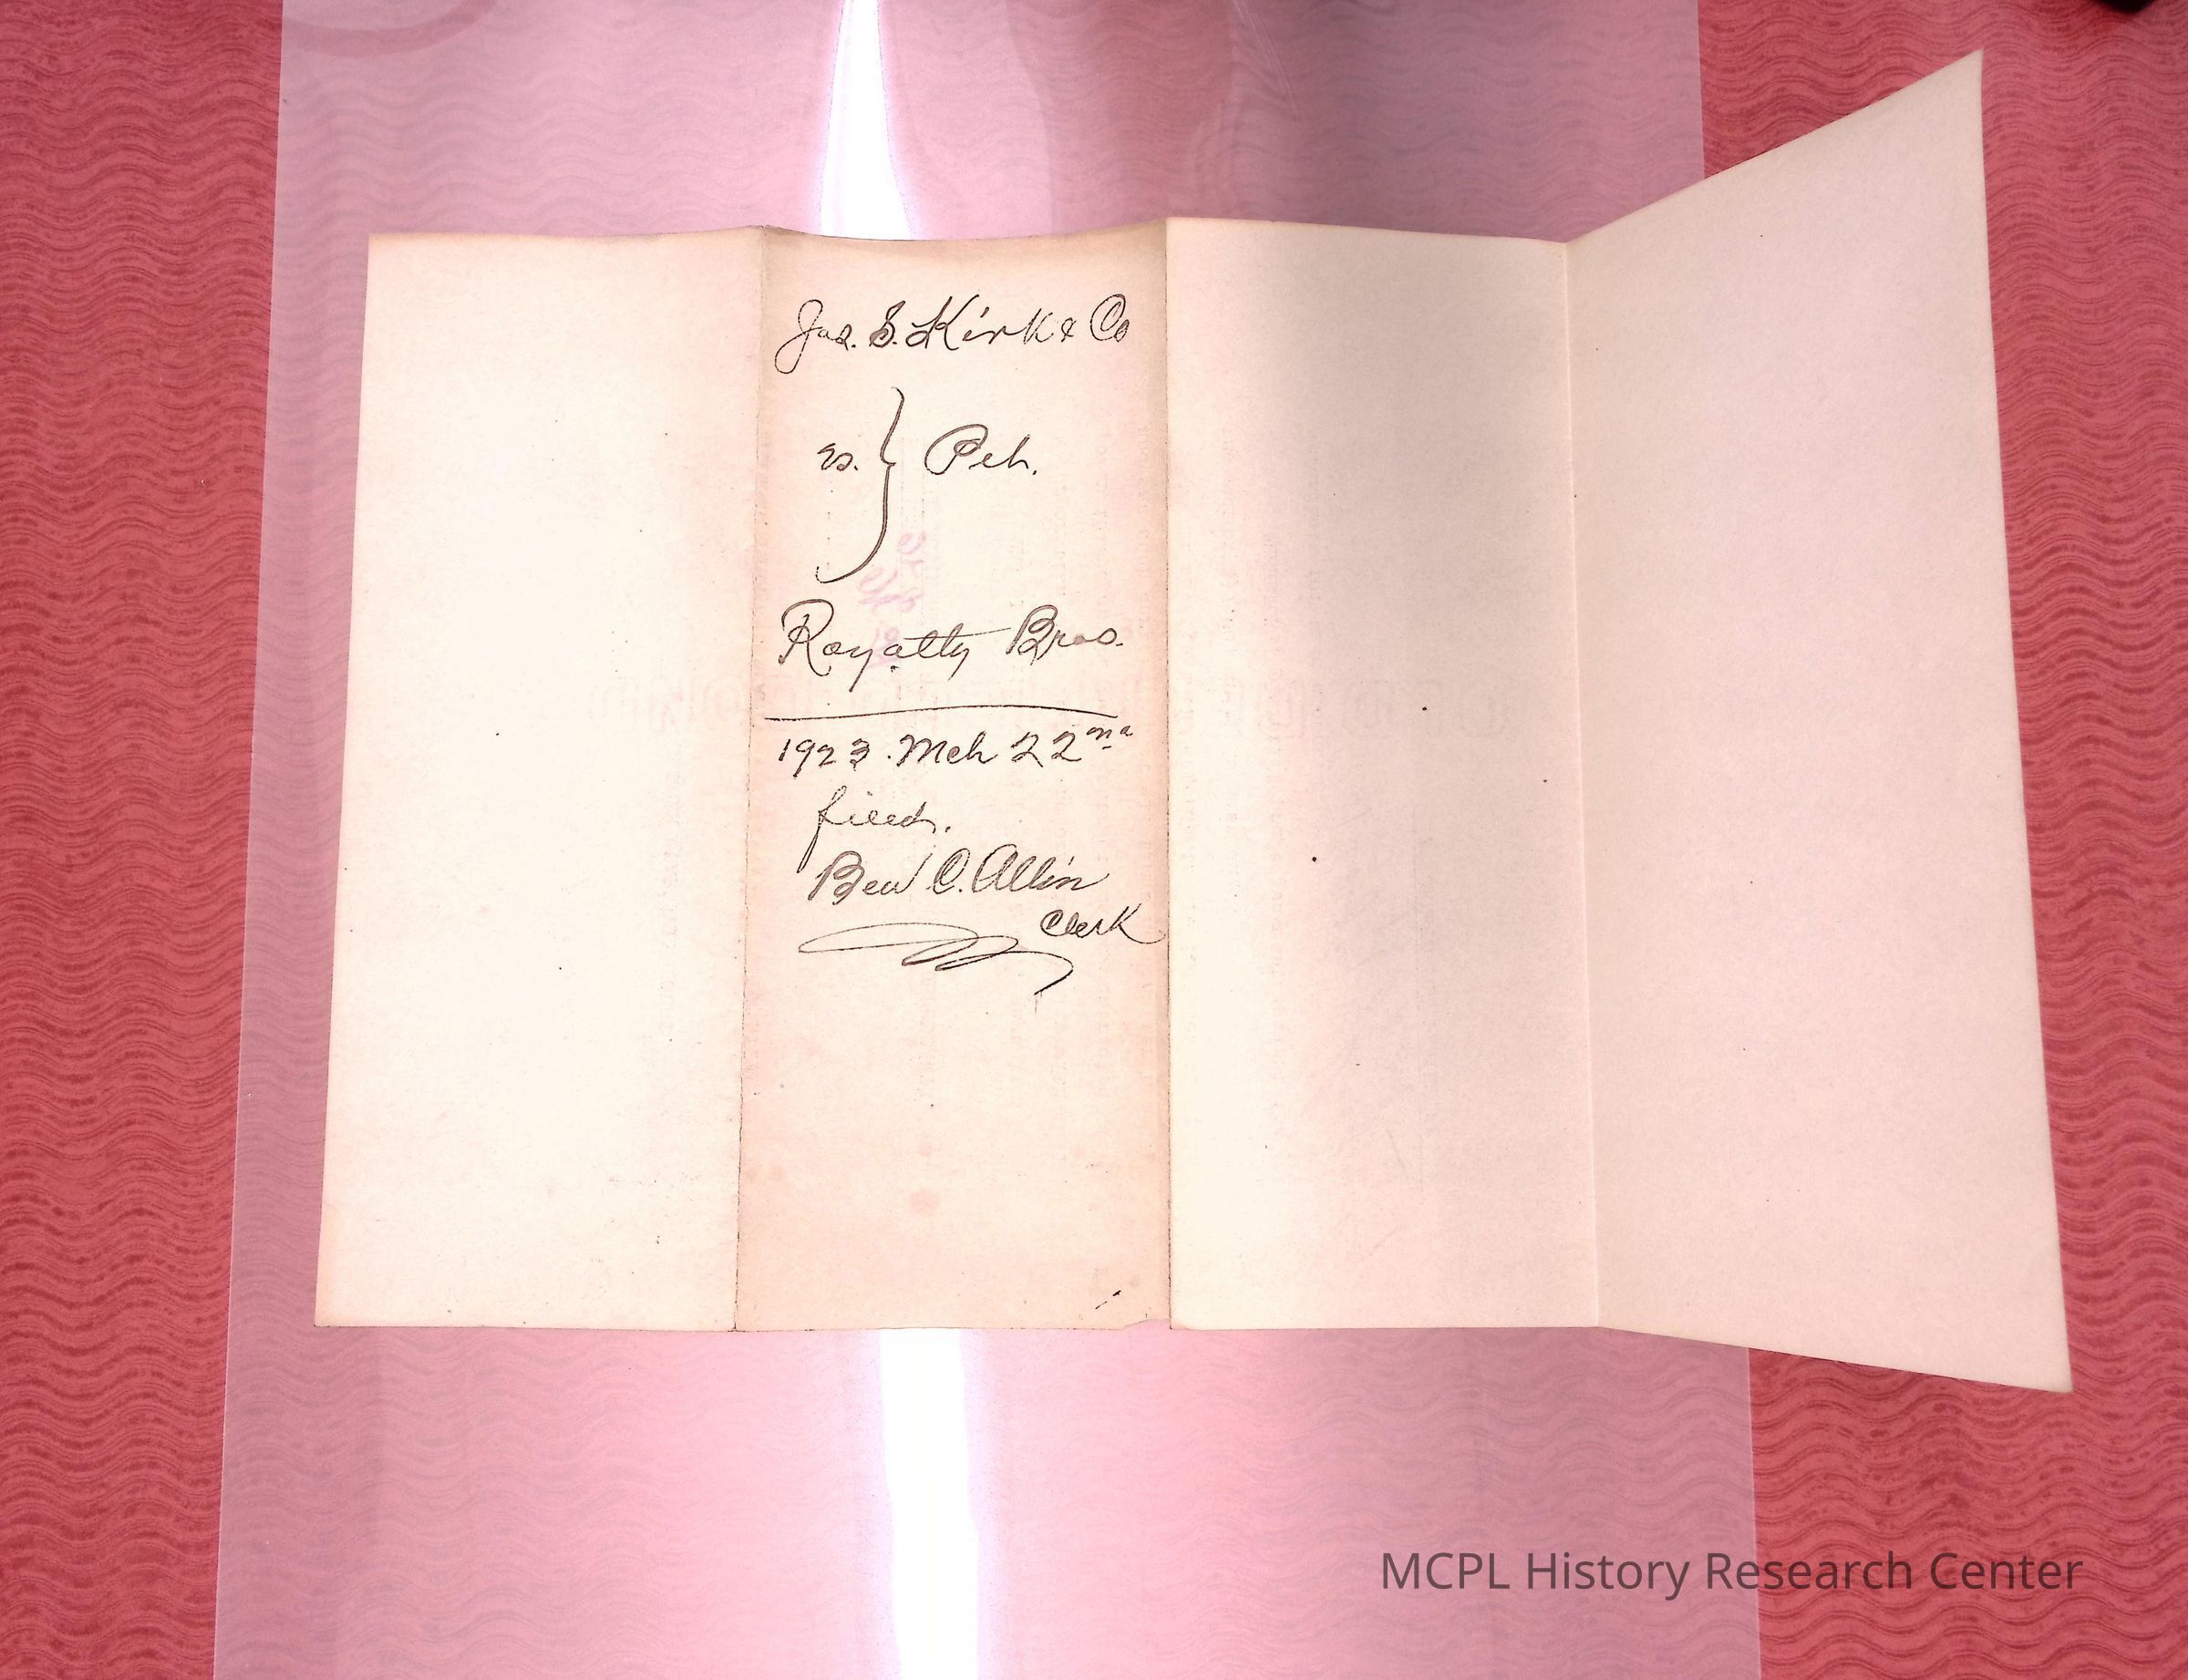 Jas. S. Kirk & Co
vs. } Pet.
Royalty Bros.
1923. Mch 22nd
filed.
Ben C. Allin
Clerk
MCPL History Research Center